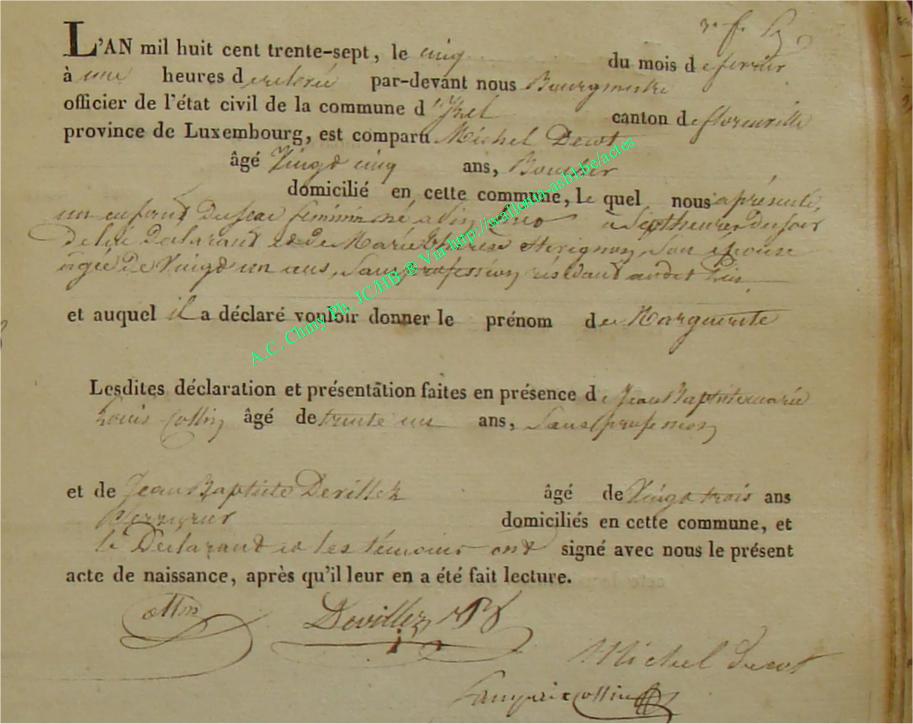 3e f.
L'AN mil huit cent trente-sept, le cinq du mois de fevrier
à une heures de relevée par-devant nous Bourgmestre
officier de l'état civil de la commune d'Izel canton de florenville
province de Luxembourg, est comparu Michel Decot
âgé Vingt cinq ans,
domicilié en cette commune, le quel nous a présenté,
un enfant du sexe feminin né a Pin, à Sept heures du soir
de lui Déclarant et de Marie Therese son epouse
agée de Vingt un ans, Sans profession résidant audit Pin
et auquel il a déclaré vouloir donner le prénom de Marguerite
Lesdites déclaration et présentation faites en présence de Jean Baptiste marie
Louis Collin âgé de trente un ans, Sans profession
et de Jean Baptiste Devillez âgé de Vingt trois ans
domiciliés en cette commune, et
le Déclarant et les témoins ont signé avec nous le présent
acte de naissance, après qu'il leur en a été fait lecture.
Collin
Devillez
Michel Decot
Collin
A.C. Chiny Ph. JCHB & Via http://wallonia-asbl.be/actes